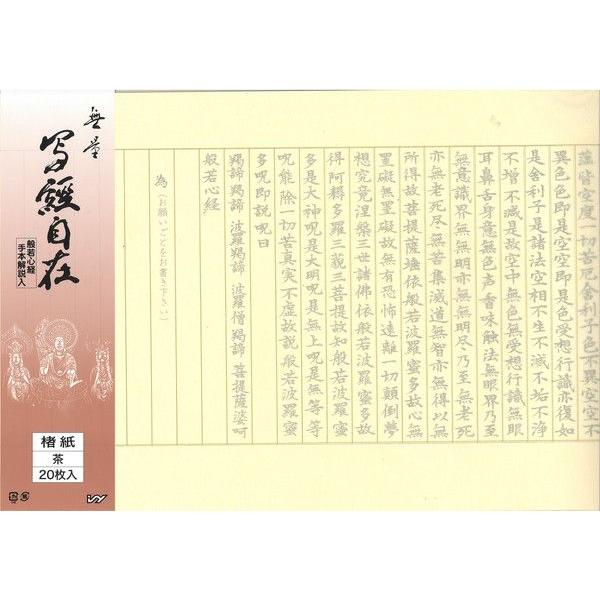 無量
写経自在
般若心経
手本解説入
楮紙
茶
20枚入
蘊皆空度一切苦厄舎利子色不異空空不
異色色即是空空即是色受想行識亦復如
是舎利子是諸法空相不生不滅不垢不浄
不増不減是故空中無色無受想行識無眼
耳鼻舌身意無色声香味触法無眼界乃至
無意識界無無明亦無無明尽乃至無老死
亦無老死尽無苦集滅道無智亦無得以無
所得故菩提薩埵依般若波羅蜜多故心無
罣礙無罣礙故無有恐怖遠離一切顛倒夢
想究竟涅槃三世諸佛依般若波羅蜜多故
得阿耨多羅三藐三菩提故知般若波羅蜜
多是大神呪是大明呪是無上呪是無等等
呪能除一切苦真実不虚故説般若波羅蜜
多呪即説呪曰
羯諦羯諦 波羅羯諦 波羅僧羯諦 菩提薩婆呵
般若心経
為(お願いごとをお書き下さい)